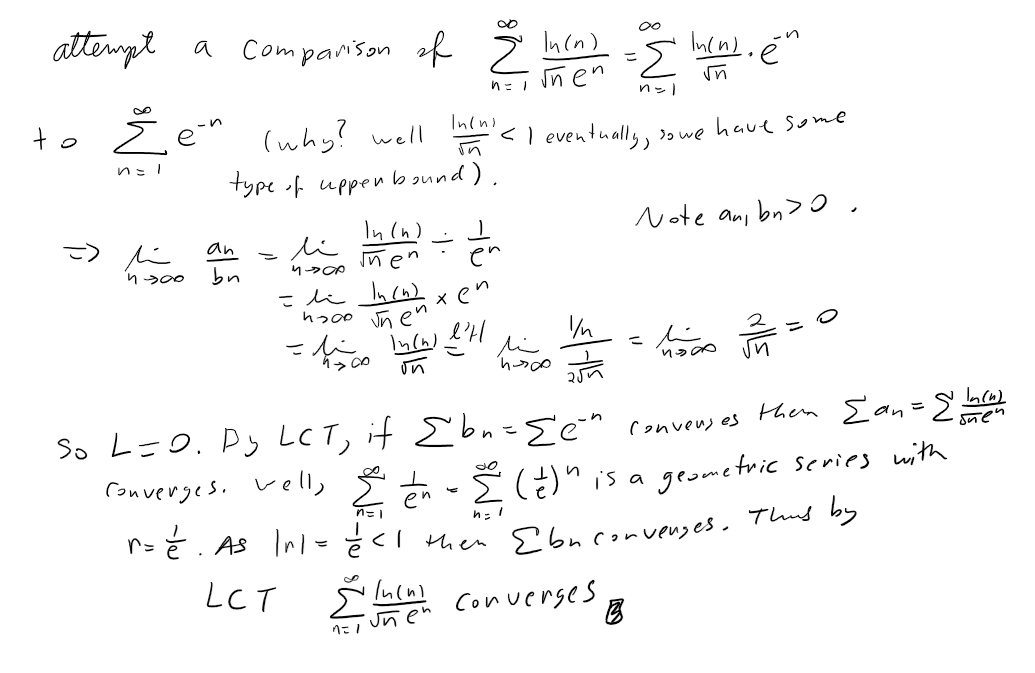 attempt a comparison of $\sum_{n=1}^{\infty} \frac{\ln(n)}{\sqrt{n} e^n} = \sum_{n=1}^{\infty} \frac{\ln(n)}{\sqrt{n}} \cdot e^{-n}$
to $\sum_{n=1}^{\infty} e^{-n}$ (why? well $\frac{\ln(n)}{\sqrt{n}} < 1$ eventually, so we have some
type of upper bound).
Note $a_n, b_n > 0$.
$\Rightarrow \lim_{n \to \infty} \frac{a_n}{b_n} = \lim_{n \to \infty} \frac{\ln(n)}{\sqrt{n} e^n} \div \frac{1}{e^n}$
$= \lim_{n \to \infty} \frac{\ln(n)}{\sqrt{n} e^n} \times e^n$
$= \lim_{n \to \infty} \frac{\ln(n)}{\sqrt{n}} \overset{l'H}{=} \lim_{n \to \infty} \frac{1/n}{\frac{1}{2\sqrt{n}}} = \lim_{n \to \infty} \frac{2}{\sqrt{n}} = 0$
So $L = 0$. By LCT, if $\sum b_n = \sum e^{-n}$ converges then $\sum a_n = \sum \frac{\ln(n)}{\sqrt{n} e^n}$
converges. Well, $\sum_{n=1}^{\infty} \frac{1}{e^n} = \sum_{n=1}^{\infty} \left(\frac{1}{e}\right)^n$ is a geometric series with
$r = \frac{1}{e}$. As $|r| = \frac{1}{e} < 1$ then $\sum b_n$ converges. Thus by
LCT $\sum_{n=1}^{\infty} \frac{\ln(n)}{\sqrt{n} e^n}$ converges